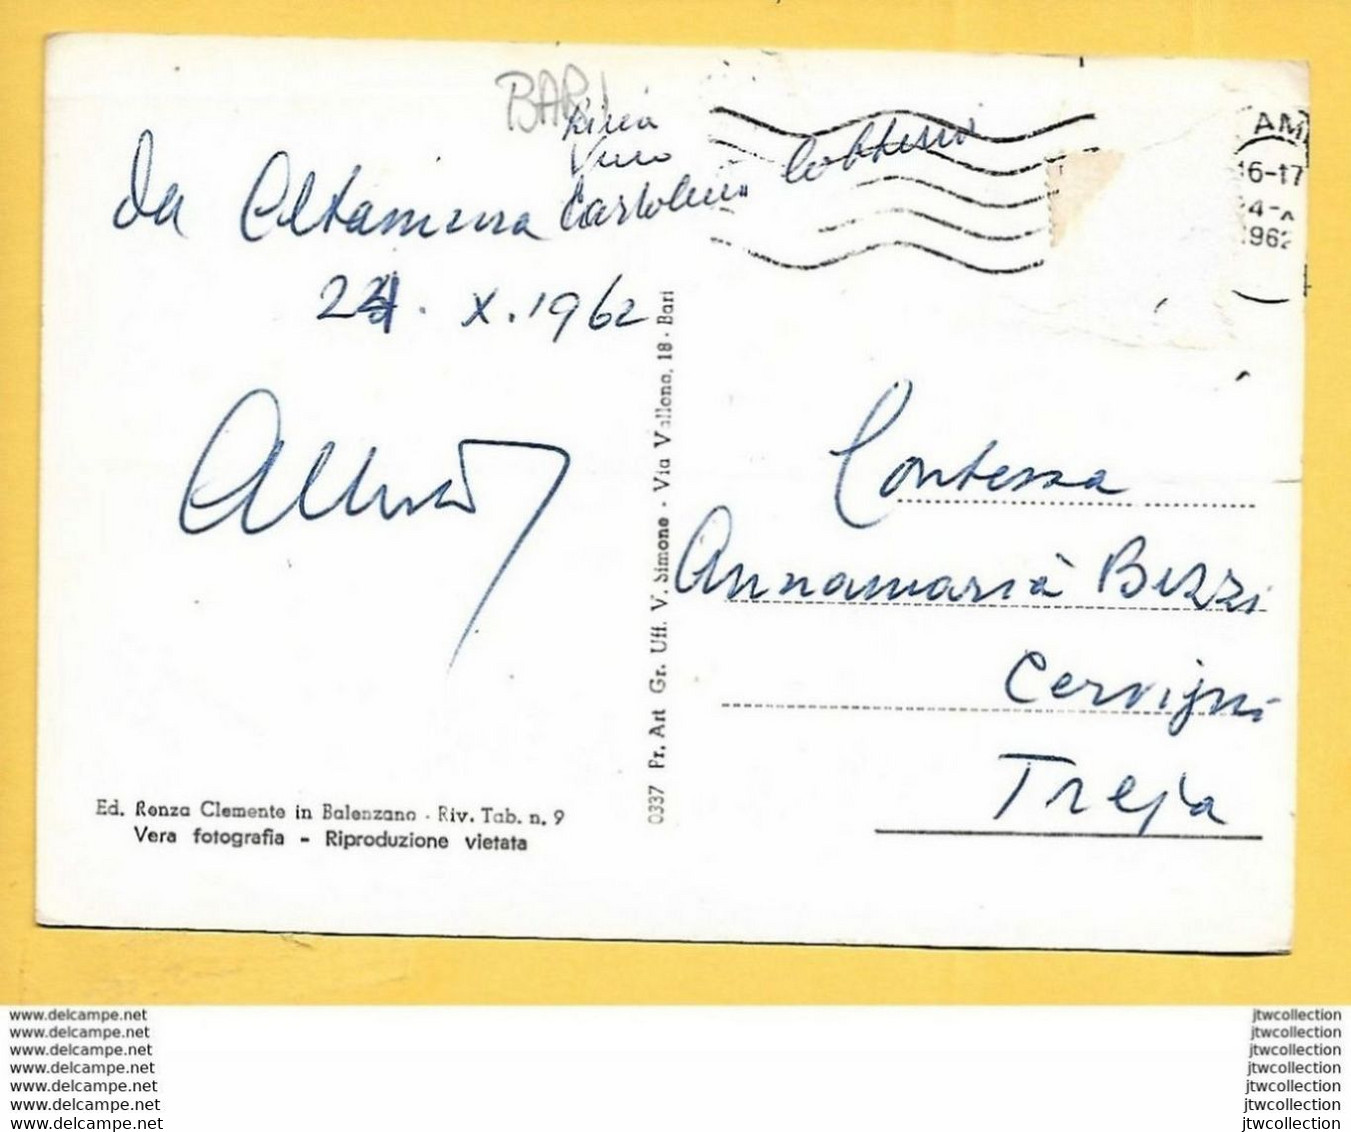 BARI
Da Altamura
24.X.1962
AM
16-17
1962
Contessa
Annamaria Bezzi
Cervigni
Treja
Ed. Renza Clemente in Balenzano - Riv. Tab. n. 9
Vera fotografia - Riproduzione vietata
0337 Pr. Art Gr. Uff. V. Simone - Via Vallona, 18 - Bari
www.delcampe.net
www.delcampe.net
www.delcampe.net
www.delcampe.net
www.delcampe.net
www.delcampe.net
www.delcampe.net
jtwcollection
jtwcollection
jtwcollection
jtwcollection
jtwcollection
jtwcollection
jtwcollection